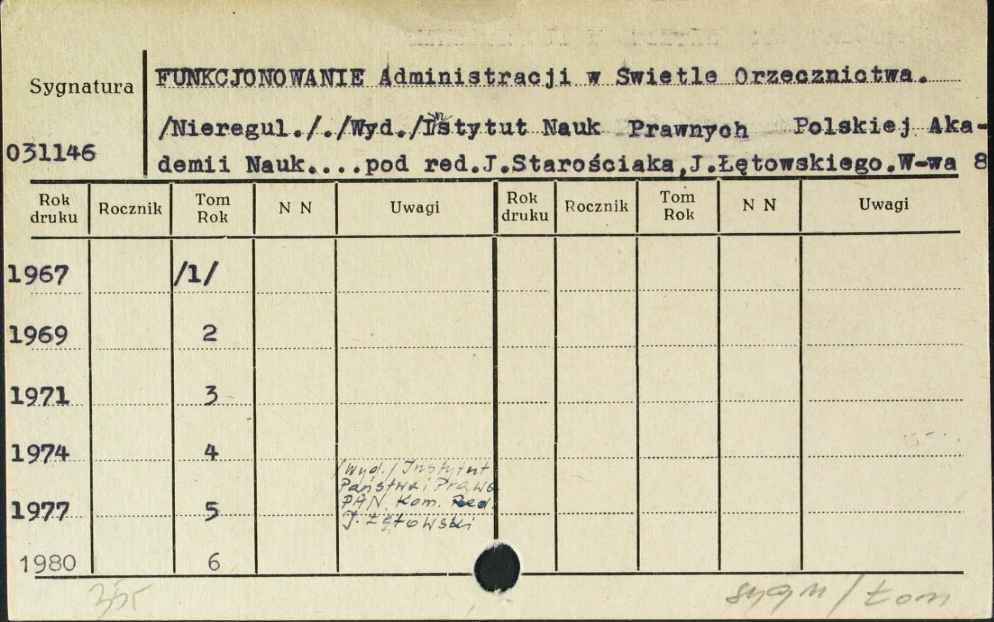 FUNKCJONOWANIE Administracji w Świetle Orzecznictwa.
Sygnatura
/Nieregul././Wyd./Instytut Nauk Prawnych Polskiej Aka-
031146
demii Nauk....pod red.J.Starościaka,J.Łętowskiego.W-wa 8
Rok druku Rocznik Tom Rok N N Uwagi Rok druku Rocznik Tom Rok N N Uwagi
1967 /1/
1969 2
1971 3
1974 4
/Wyd./ Instytut
Państwa i Prawa
PAN. Kom. Red.
J. Łętowski
1977 5
1980 6
sygn / Tom